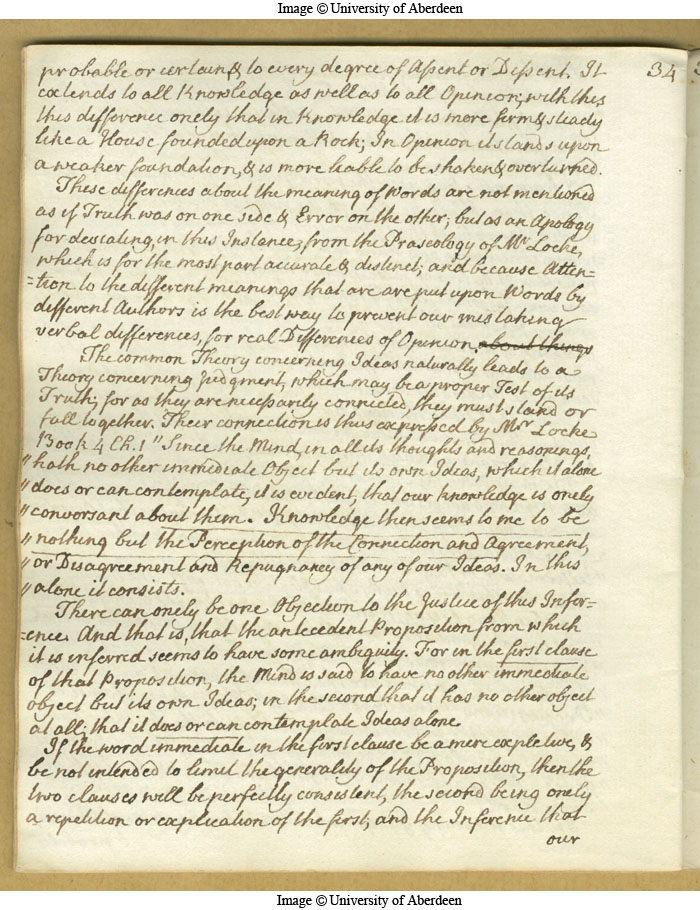 Image © University of Aberdeen
34
probable or certain, & to every degree of Assent or Dissent. It
extends to all Knowledge as well as to all Opinion; with this
this difference onely that in Knowledge it is more firm & steady
like a House founded upon a Rock; In Opinion it stands upon
a weaker foundation, & is more leable to be shaken & overturned.
These differences about the meaning of Words are not mentioned
as if Truth was on one side & Error on the other; but as an Apology
for deviating, in this Instance, from the Praseology of Mr Locke,
which is for the most part accurate & distinct; and because Atten=
=tion to the different meanings that are are put upon Words by
different Authors is the best way to prevent our mistaking
verbal differences, for real Differences of Opinion. about things
The common Theory concerning Ideas naturally leads to a
Theory concerning Judgment, which may be a proper Test of its
Truth; for as they are necessarily connected, they must stand or
fall together. Their connection is thus expressed by Mr Locke
Book 4 Ch. 1 " Since the Mind, in all its thoughts and reasonings,
" hath no other immediate Object but its own Ideas, which it alone
" does or can contemplate, it is evident, that our knowledge is onely
" conversant about them. Knowledge then seems to me to be
" nothing but the Perception of the Connection and Agreement,
" or Disagreement and Repugnancy of any of our Ideas. In this
" alone it consists.
There can onely be one Objection to the Justice of this Infer=
=ence. And that is, that the antecedent Proposition from which
it is inferred seems to have some ambiguity. For in the first clause
of that Proposition, the Mind is said to have no other immediate
object but its own Ideas; in the second that it has no other object
at all; that it does or can contemplate Ideas alone.
If the word immediate in the first clause be a mere expletive, &
be not intended to limit the generality of the Proposition, then the
two clauses will be perfectly consistent, the second being onely
a repetition or explication of the first; and the Inference that
our
Image © University of Aberdeen